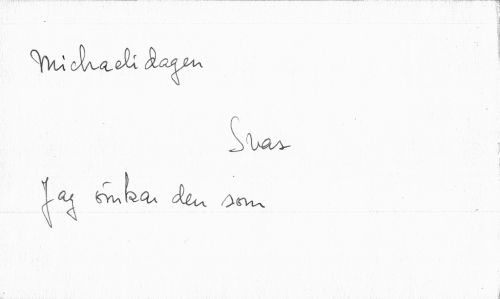 Michaelidagen
Svar
Jag ömkar den som